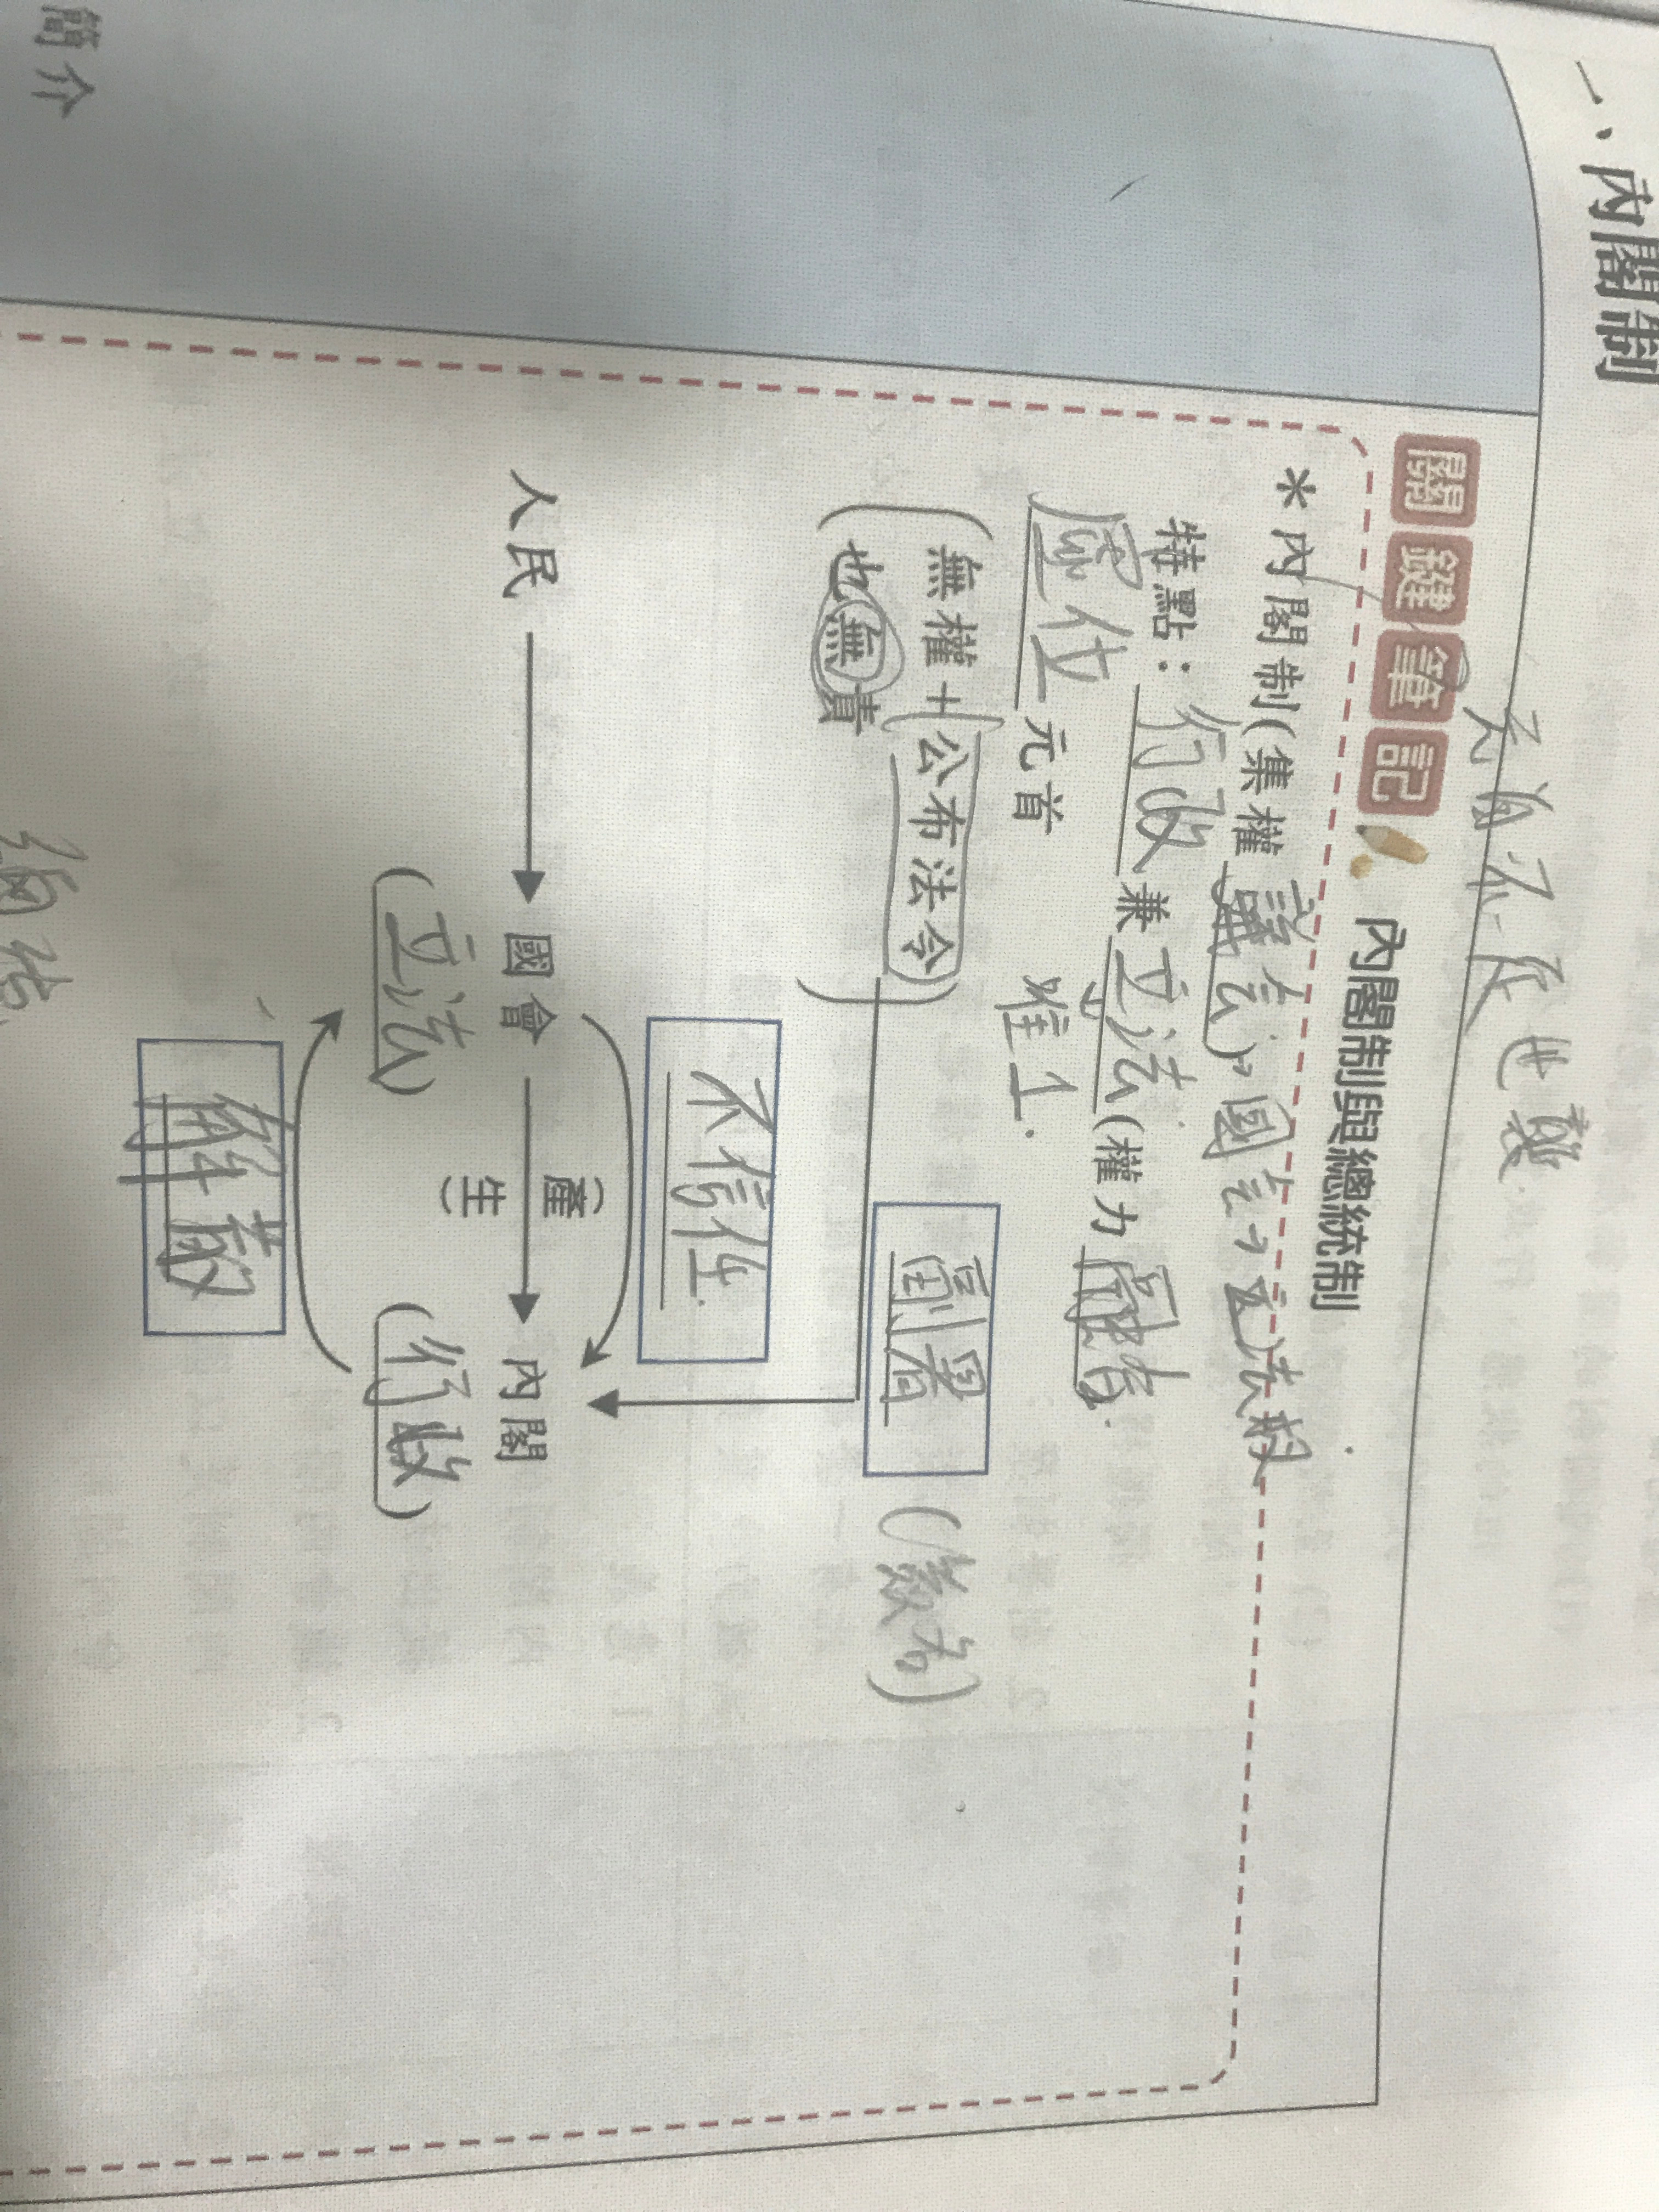 一、內閣制
天有不
關鍵筆記 內閣制與總統制
*內閣制(集權議會)→國會→立法權
特點：行政兼立法(權力
虛位元首
唯一.
(無權+公布法令)
也無責
副署
不信任.
人民 → 國會 → 內閣
(產生)
(立法) (行政)
解散
簡介